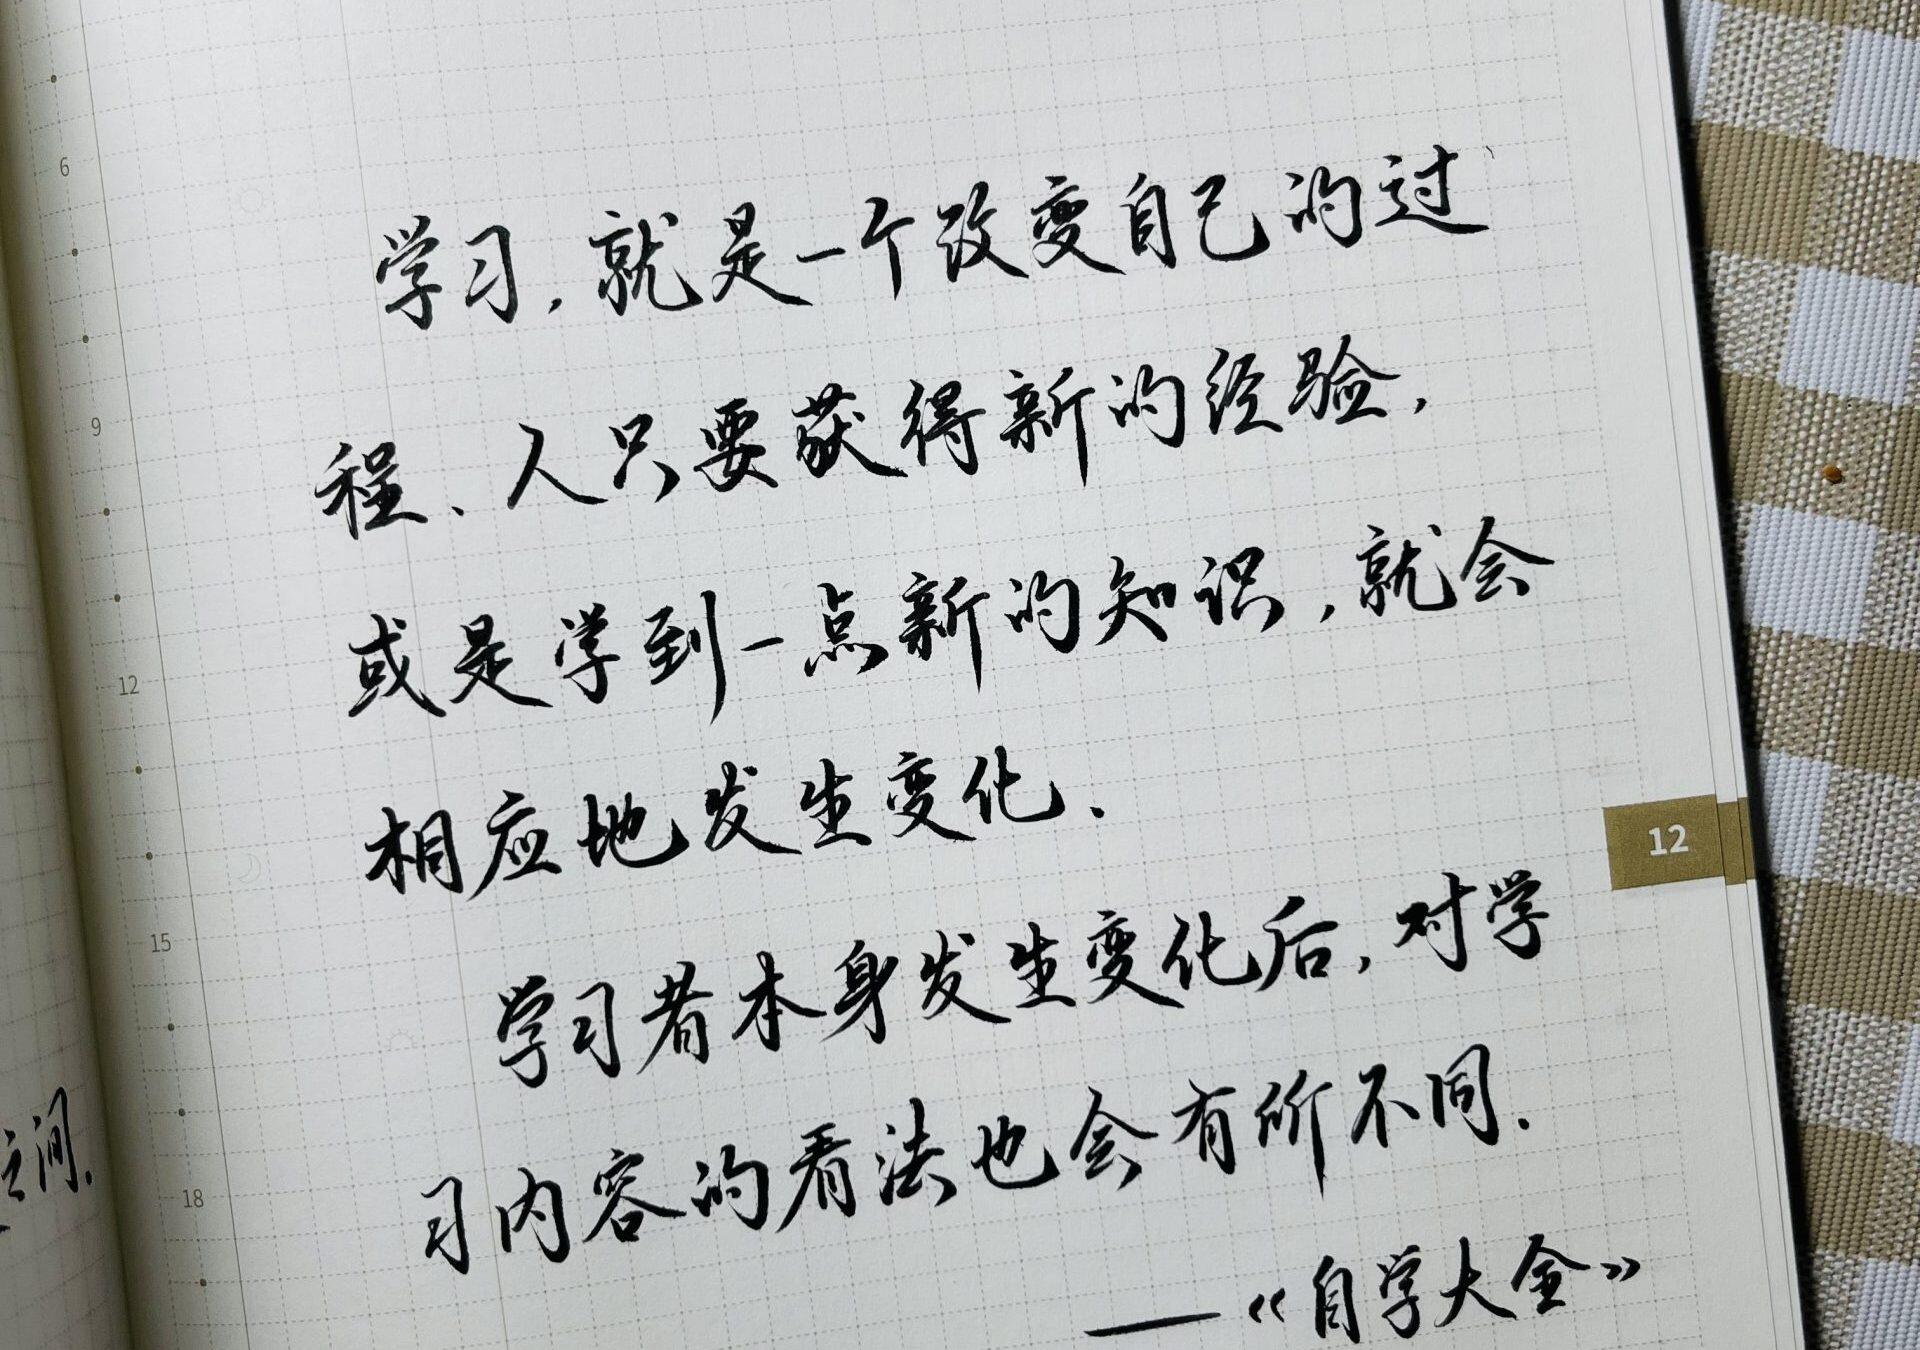 学习，就是一个改变自己的过
程、人只要获得新的经验，
或是学到一点新的知识，就会
相应地发生变化.
学习者本身发生变化后，对学
习内容的看法也会有所不同.
——《自学大全》
6
9
12
15
18
12
之间.